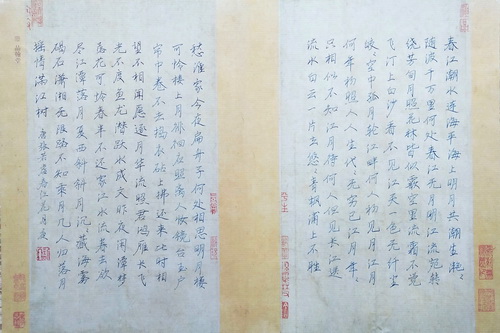 春江潮水连海平海上明月共潮生滟〻
随波千万里何处春江无月明江流宛转
绕芳甸月照花林皆似霰空里流霜不觉
飞汀上白沙看不见江天一色无纤尘
皎〻空中孤月轮江畔何人初见月江月
何年初照人人生代〻无穷已江月年〻
只相似不知江月待何人但见长江送
流水白云一片去悠〻青枫浦上不胜
愁谁家今夜扁舟子何处相思明月楼
可怜楼上月徘徊应照离人妆镜台玉户
帘中卷不去捣衣砧上拂还来此时相
望不相闻愿逐月华流照君鸿雁长飞
光不度鱼龙潜跃水成文昨夜闲潭梦
落花可怜春半不还家江水流春去欲
尽江潭落月复西斜斜月沉〻藏海雾
碣石潇湘无限路不知乘月几人归落月
摇情满江树 唐张若虚春江花月夜